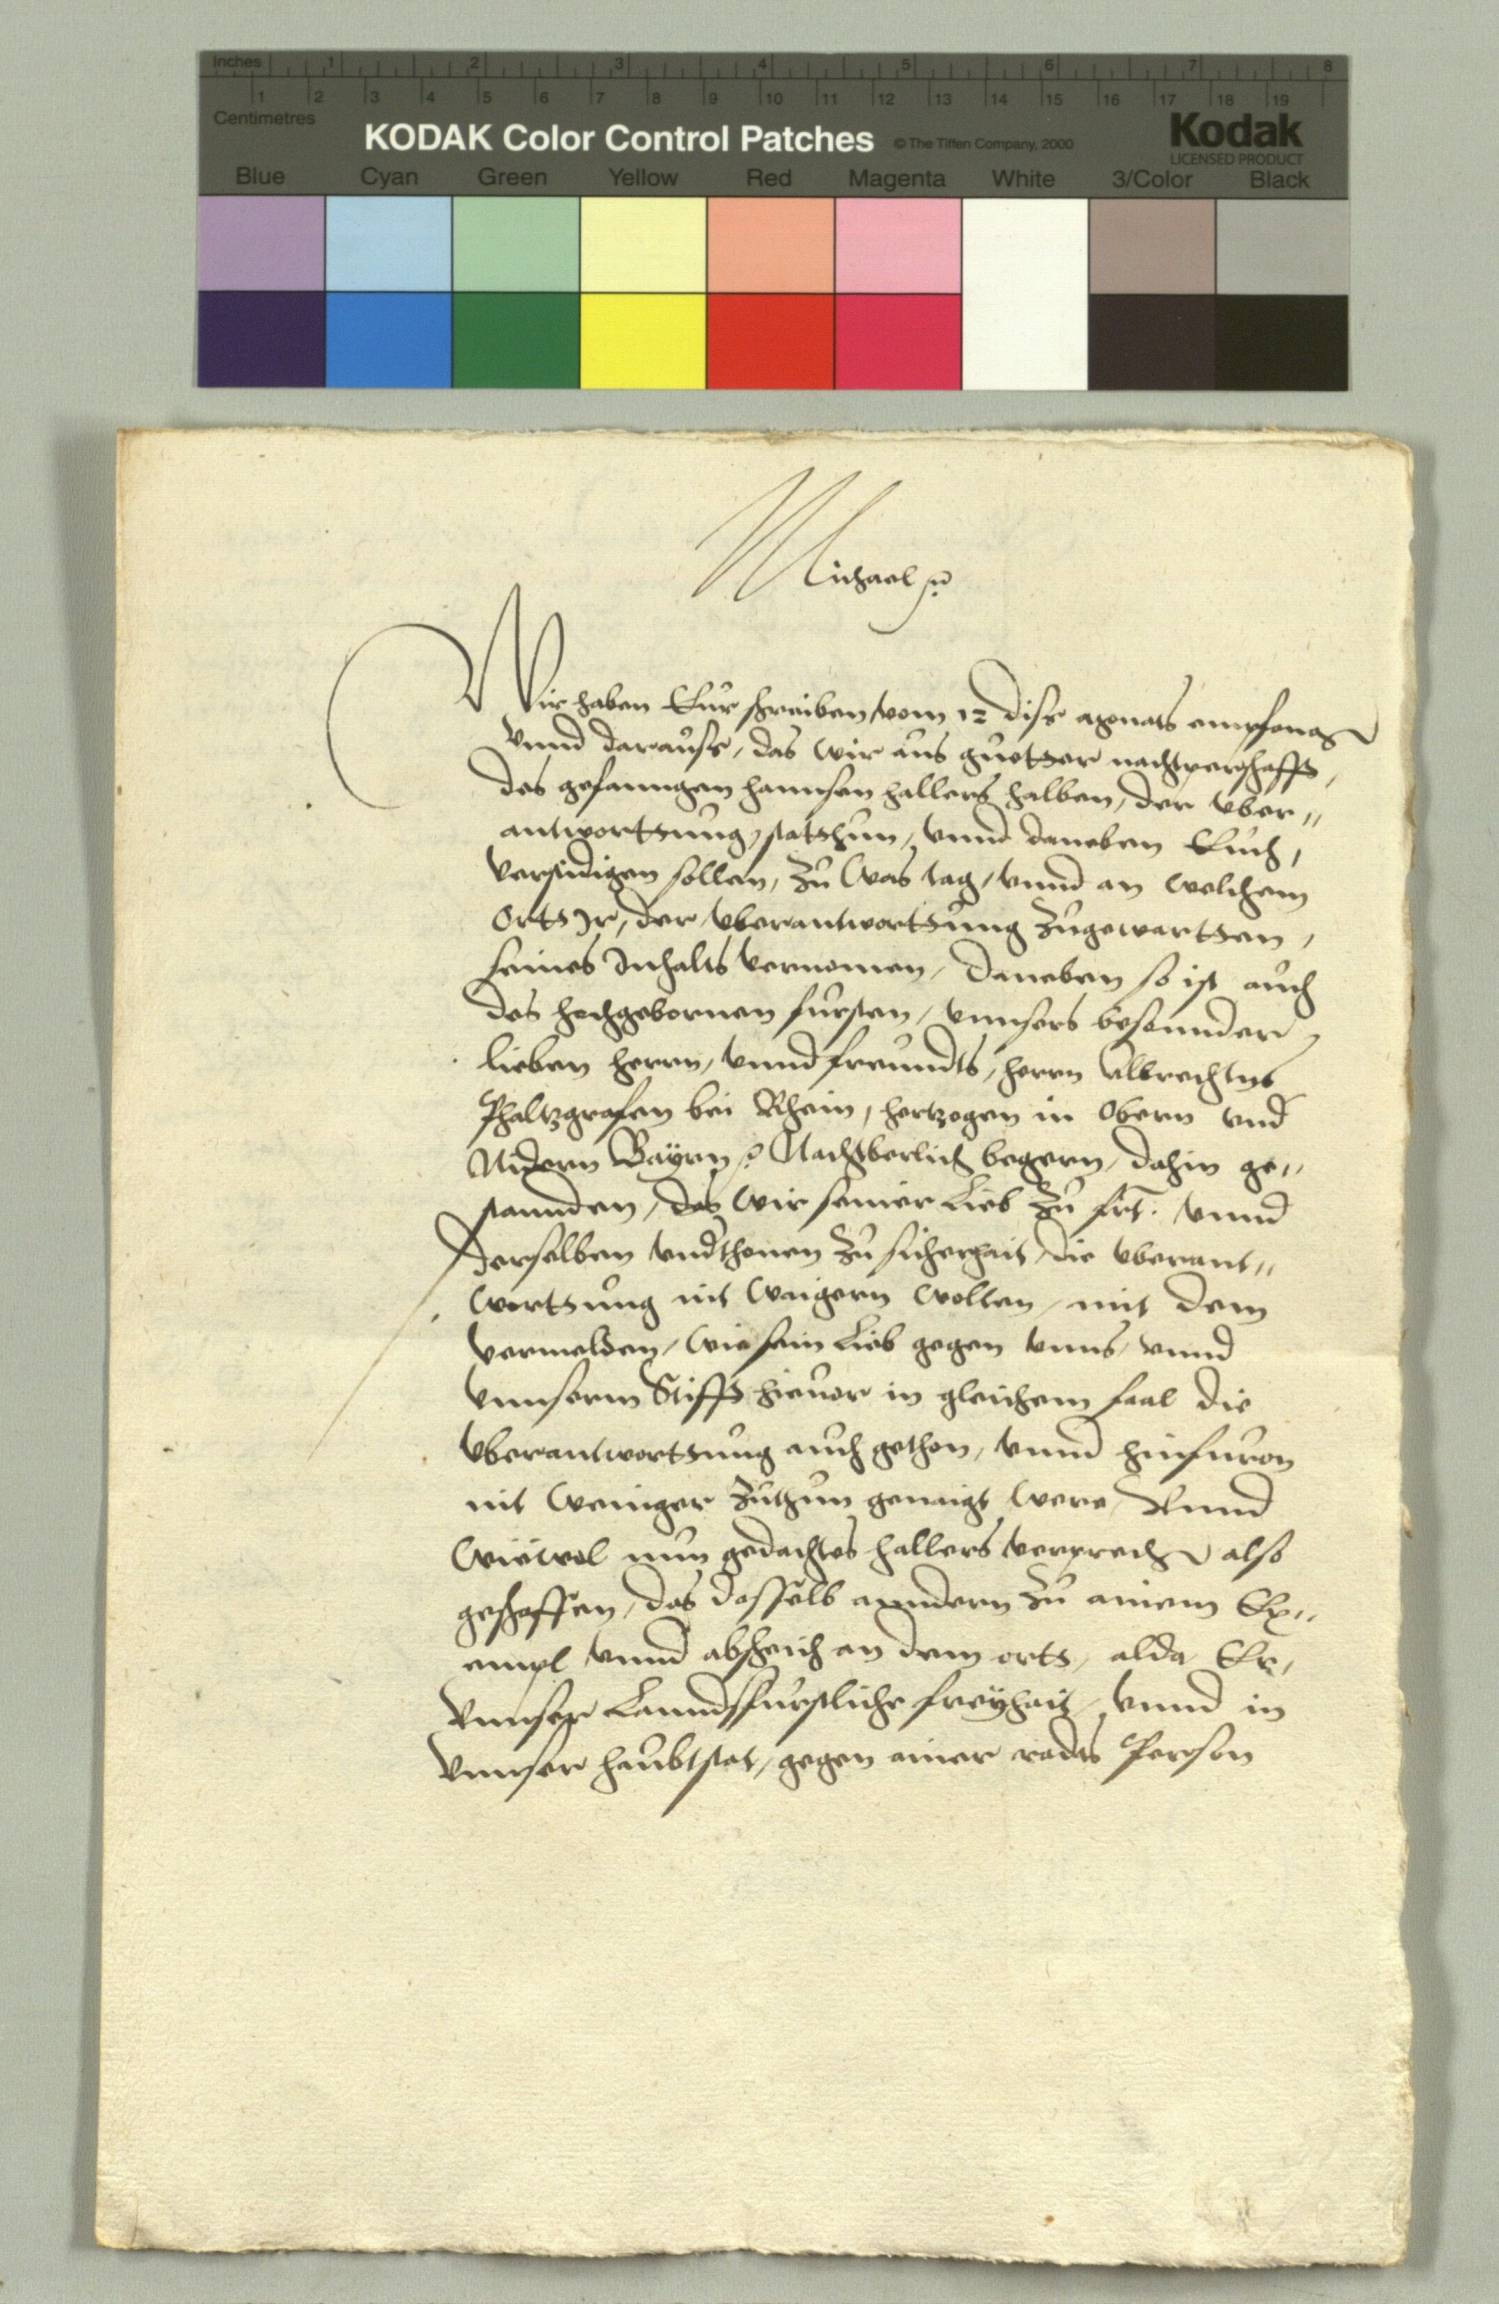 Inches 1 2 3 4 5 6 7 8
1 2 3 4 5 6 7 8 9 10 11 12 13 14 15 16 17 18 19
Centimetres
KODAK Color Control Patches © The Tiffen Company, 2000 Kodak
LICENSED PRODUCT
Blue Cyan Green Yellow Red Magenta White 3/Color Black
Michael
Wir haben Eur schreiben vom 12 diss monats empfangen
vnnd darauss, das wir aus guetter nachperschafft,
des gefanngen hannsen hallers halben, der vber"
antworttung, statthun, vnnd daneben Euch,
verstendigen sollen, zu was tag, vnnd an welchem
Ortt Jr, der vberanttworttung zugewartten,
seines Jnhalts vernomen, daneben so ist auch
des hochgebornen fursten, vnnsers besonndern
lieben herrn, vnnd freundts, herrn Albrechten
Phaltzgrafen bei Rhein, hertzogen in Obern vnd
Nidern Bayrn Nachtberlich begern, dahin ge"
stannden, das wir seiner Lieb zu frt. vnnd
derselben vndthonen zu sicherhait, die vberant"
worttung nit waigern wolten, mit dem
vermelden, wie sein Lieb gegen vnns, vnnd
vnnserm Stifft hieuor in gleichem faal die
vberantworttung auch gethon, vnnd hinfuron
nit weniger zuthun genaigt were, Vnnd
wiewol nun gedachts hallers verprechen also
geschaffen, das dasselb anndern zu ainem Ex"
empl vnnd abscheich an dem ortt, alda Er,
vnnser Lanndsfurstliche freyhait, vnnd in
vnnser haubtstat, gegen ainer radts Person